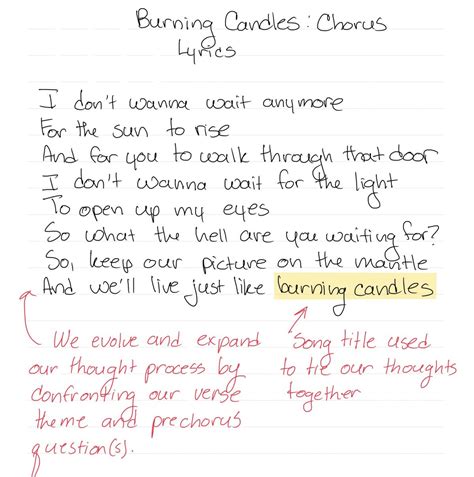 Burning Candles: Chorus
Lyrics
I don't wanna wait anymore
For the sun to rise
And for you to walk through that door
I don't wanna wait for the light
To open up my eyes
So what the hell are you waiting for?
So, keep our picture on the mantle
And we'll live just like burning candles
We evolve and expand
our thought process by
confronting our verse
theme and prechorus
question(s).
Song title used
to tie our thoughts
together